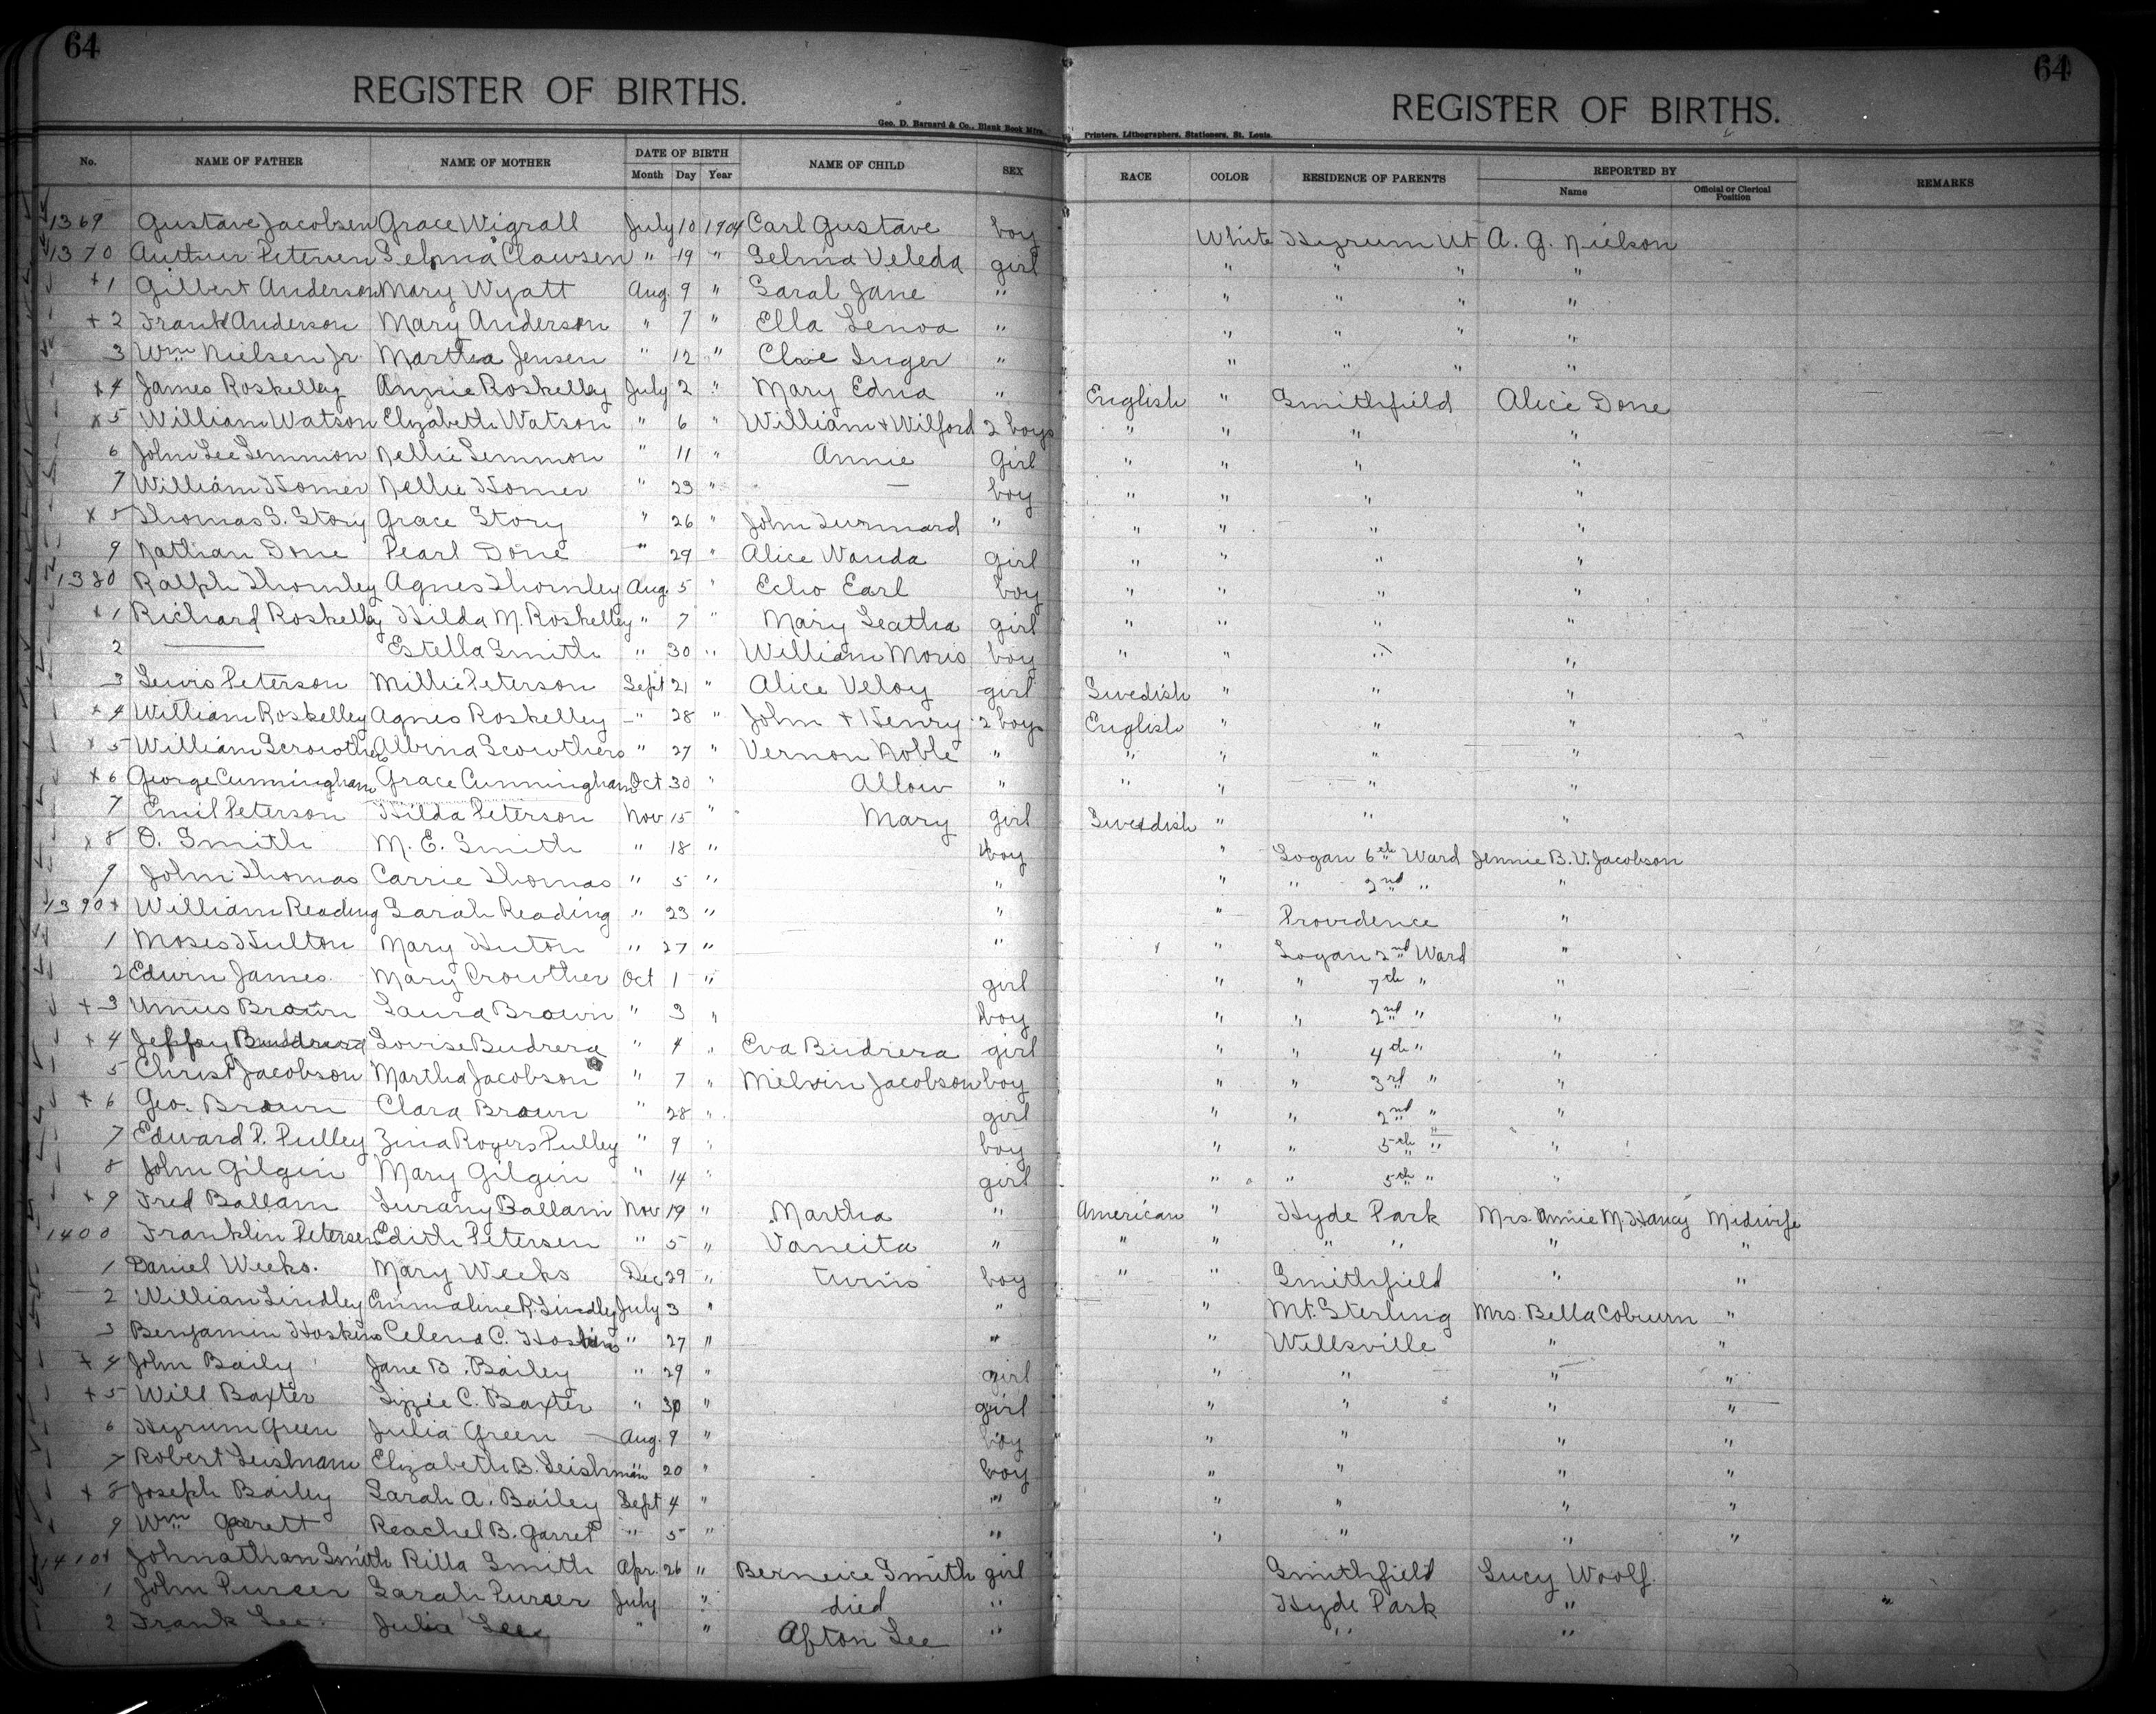 64
64
REGISTER OF BIRTHS.
REGISTER OF BIRTHS.
Geo. D. Barnard & Co., Blank Book Mfrs.
Printers, Lithographers, Stationers, St. Louis.
No. NAME OF FATHER NAME OF MOTHER DATE OF BIRTH NAME OF CHILD SEX RACE COLOR RESIDENCE OF PARENTS REPORTED BY REMARKS
Month Day Year Name Official or Clerical Position
1369 Gustave Jacobsen Grace Wigrall July 10 1904 Carl Gustave boy White Hyrum Ut A. G. Nielson
1370 Authur Petersen Selma Clawsen " 19 " Selma Veleda girl " " " "
+1 Gilbert Anderson Mary Wyatt Aug. 9 " Saral Jane " " " " "
+2 Frank Anderson Mary Anderson " 7 " Ella Lenoa " " " " "
3 Wm Nielsen Jr. Martha Jensen " 12 " Inger " " " " "
x4 James Roskelley Annie Roskelley July 2 " Mary Edna " English " Smithfield Alice Done
x5 William Watson Elizabeth Watson " 6 " William + Wilford 2 boys " " " "
6 John Lee Lemmon Nellie Lemmon " 11 " Annie Girl " " " "
7 William Homer Nellie Homer " 23 " — boy " " " "
x 8 Thomas S. Story Grace Story " 26 " John " " " " "
9 Nathan Done Pearl Done " 29 " Alice Wanda girl " " " "
1380 Ralph Thornley Agnes Thornley Aug. 5 " Echo Earl boy " " " "
x1 Richard Roskelley Hilda M. Roskelley " 7 " Mary Leatha girl " " " "
2 — Estella Smith " 30 " William Moris boy " " " "
3 Lewis Peterson Millie Peterson Sept 21 " Alice Veloy girl Swedish " " "
x4 William Roskelley Agnes Roskelley " 28 " John + Henry 2 boys English " " "
x5 William Scrowthers Albina Scowthers " 27 " Vernon Noble " " " " "
x6 George Cunningham Grace Cunningham Oct 30 " Allow " " " " "
7 Emil Peterson Hilda Peterson Nov 15 " Mary girl Swedish " " "
x8 O. Smith M. E. Smith " 18 " boy " Logan 6th Ward Jennie B. V. Jacobson
9 John Thomas Carrie Thomas " 5 " " " " 2nd " "
1390+ William Reading Sarah Reading " 23 " " " Providence "
1 Moses Hulton Mary Huton " 27 " " " Logan 2nd Ward "
2 Edwin James Mary Crowther Oct 1 " girl " " 7th " "
+3 Brown Laura Brown " 3 " boy " " 2nd " "
+4 Louise Budrera " 4 " Eva Budrera girl " " 4th " "
5 Christ Jacobson Martha Jacobson " 7 " Melvin Jacobson boy " " 3rd " "
+6 Geo. Brown Clara Brown " 28 " girl " " 2nd " "
7 Edward P. Pulley Zina Rogers Pulley " 9 " boy " " 5th " "
8 John Gilgin Mary Gilgin " 14 " girl " " 5th " "
+9 Fred Ballam Lurany Ballam Nov 19 " Martha " American " Hyde Park Mrs. Annie M. Hancy Midwife
1400 Franklin Petersen Edith Petersen " 5 " Vaneita " " " " " " "
1 Daniel Weeks. Mary Weeks Dec 29 " twins boy " " Smithfield " "
2 William Lindley Emmaline R. Lindley July 3 " " " Mt. Sterling Mrs. Bella Coburn "
3 Benjamin Hoskins Celena C. Hoskins " 27 " " " Wellsville " "
+4 John Baily Jane B. Bailey " 29 " girl " " " "
+5 Will Baxter Lizzie C. Baxter " 30 " girl " " " "
6 Hyrum Green Julia Green Aug. 9 " boy " " " "
7 Robert Leishman Elizabeth B. Leishman " 20 " boy " " " "
+8 Joseph Bailey Sarah A. Bailey Sept 4 " " " " " "
9 Wm Garrett Reachel B. Garret " 5 " " " " " "
1410+ Johnathan Smith Rilla Smith Apr. 26 " Berneice Smith girl Smithfield Lucy Woolf.
1 John Purser Sarah Purser July " died " Hyde Park "
2 Frank Lee Julia Lee " " Afton Lee " " "